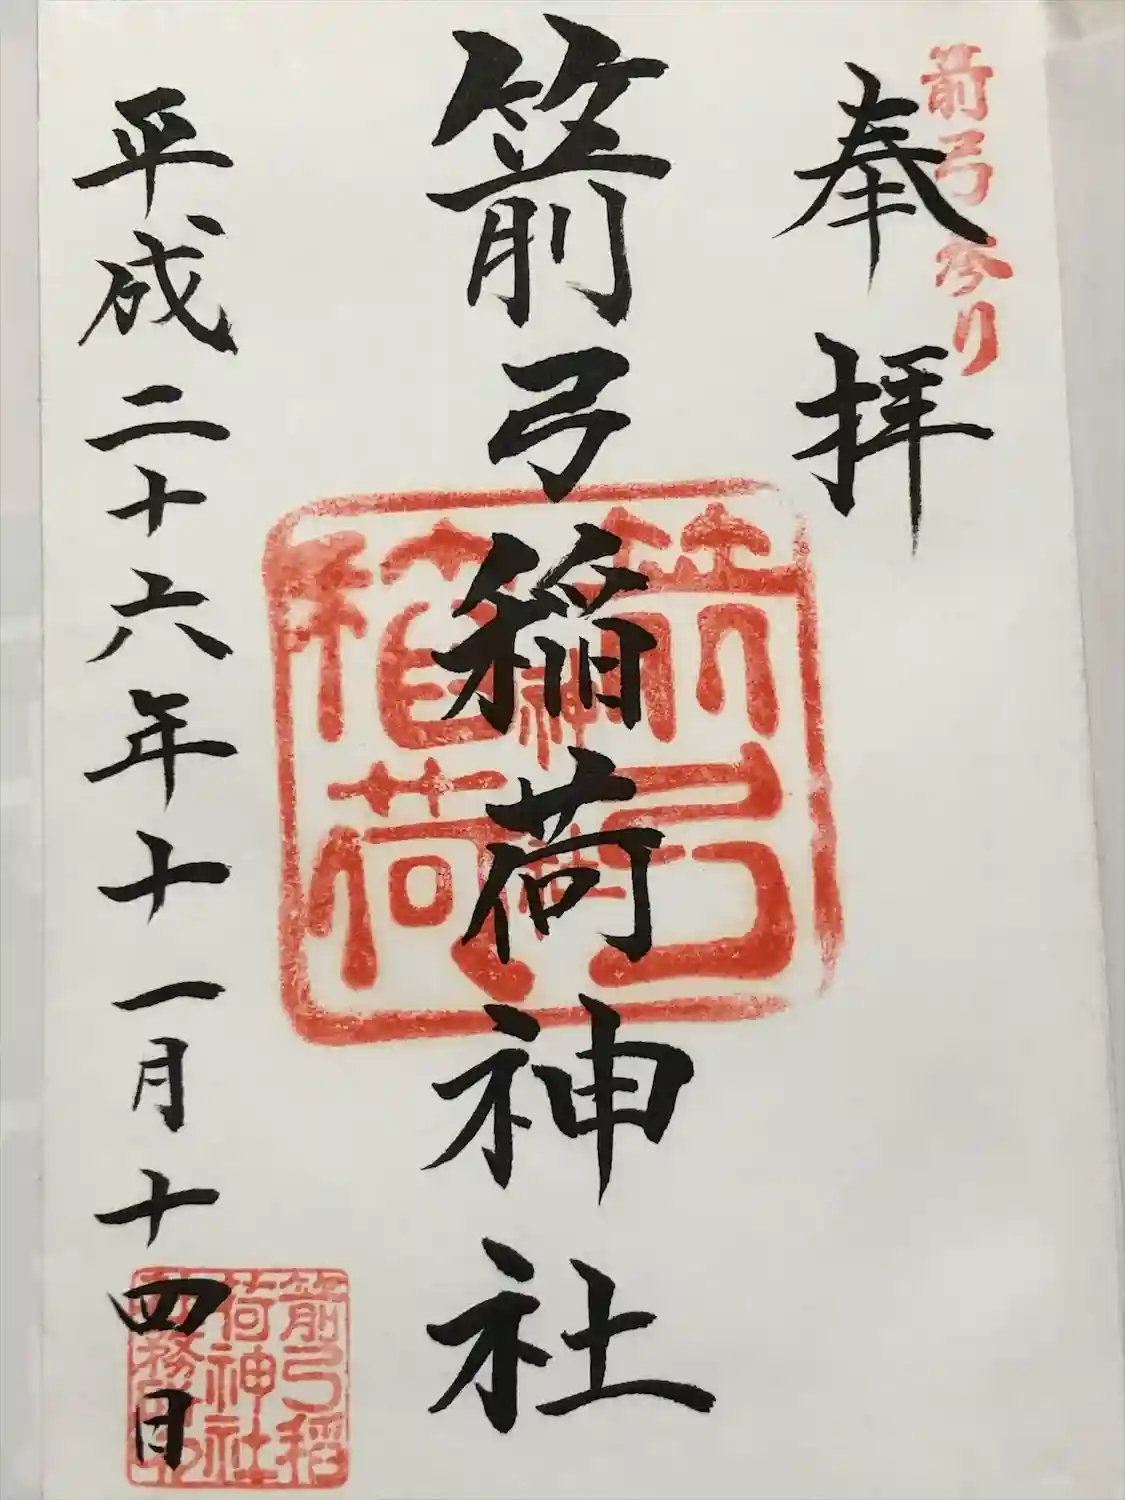 箭弓参り
奉拝
箭弓稲荷神社
箭弓稲荷神社
平成二十六年十一月十四日
箭弓稲
荷神社